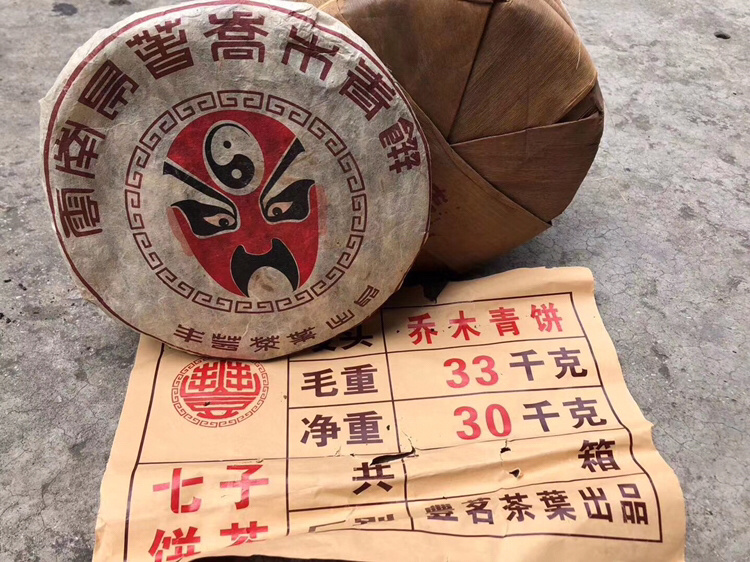 雲南易普喬木青餅
乔木青饼
毛重 33千克
净重 30千克
共 箱
七子
饼茶
豐茗茶葉出品